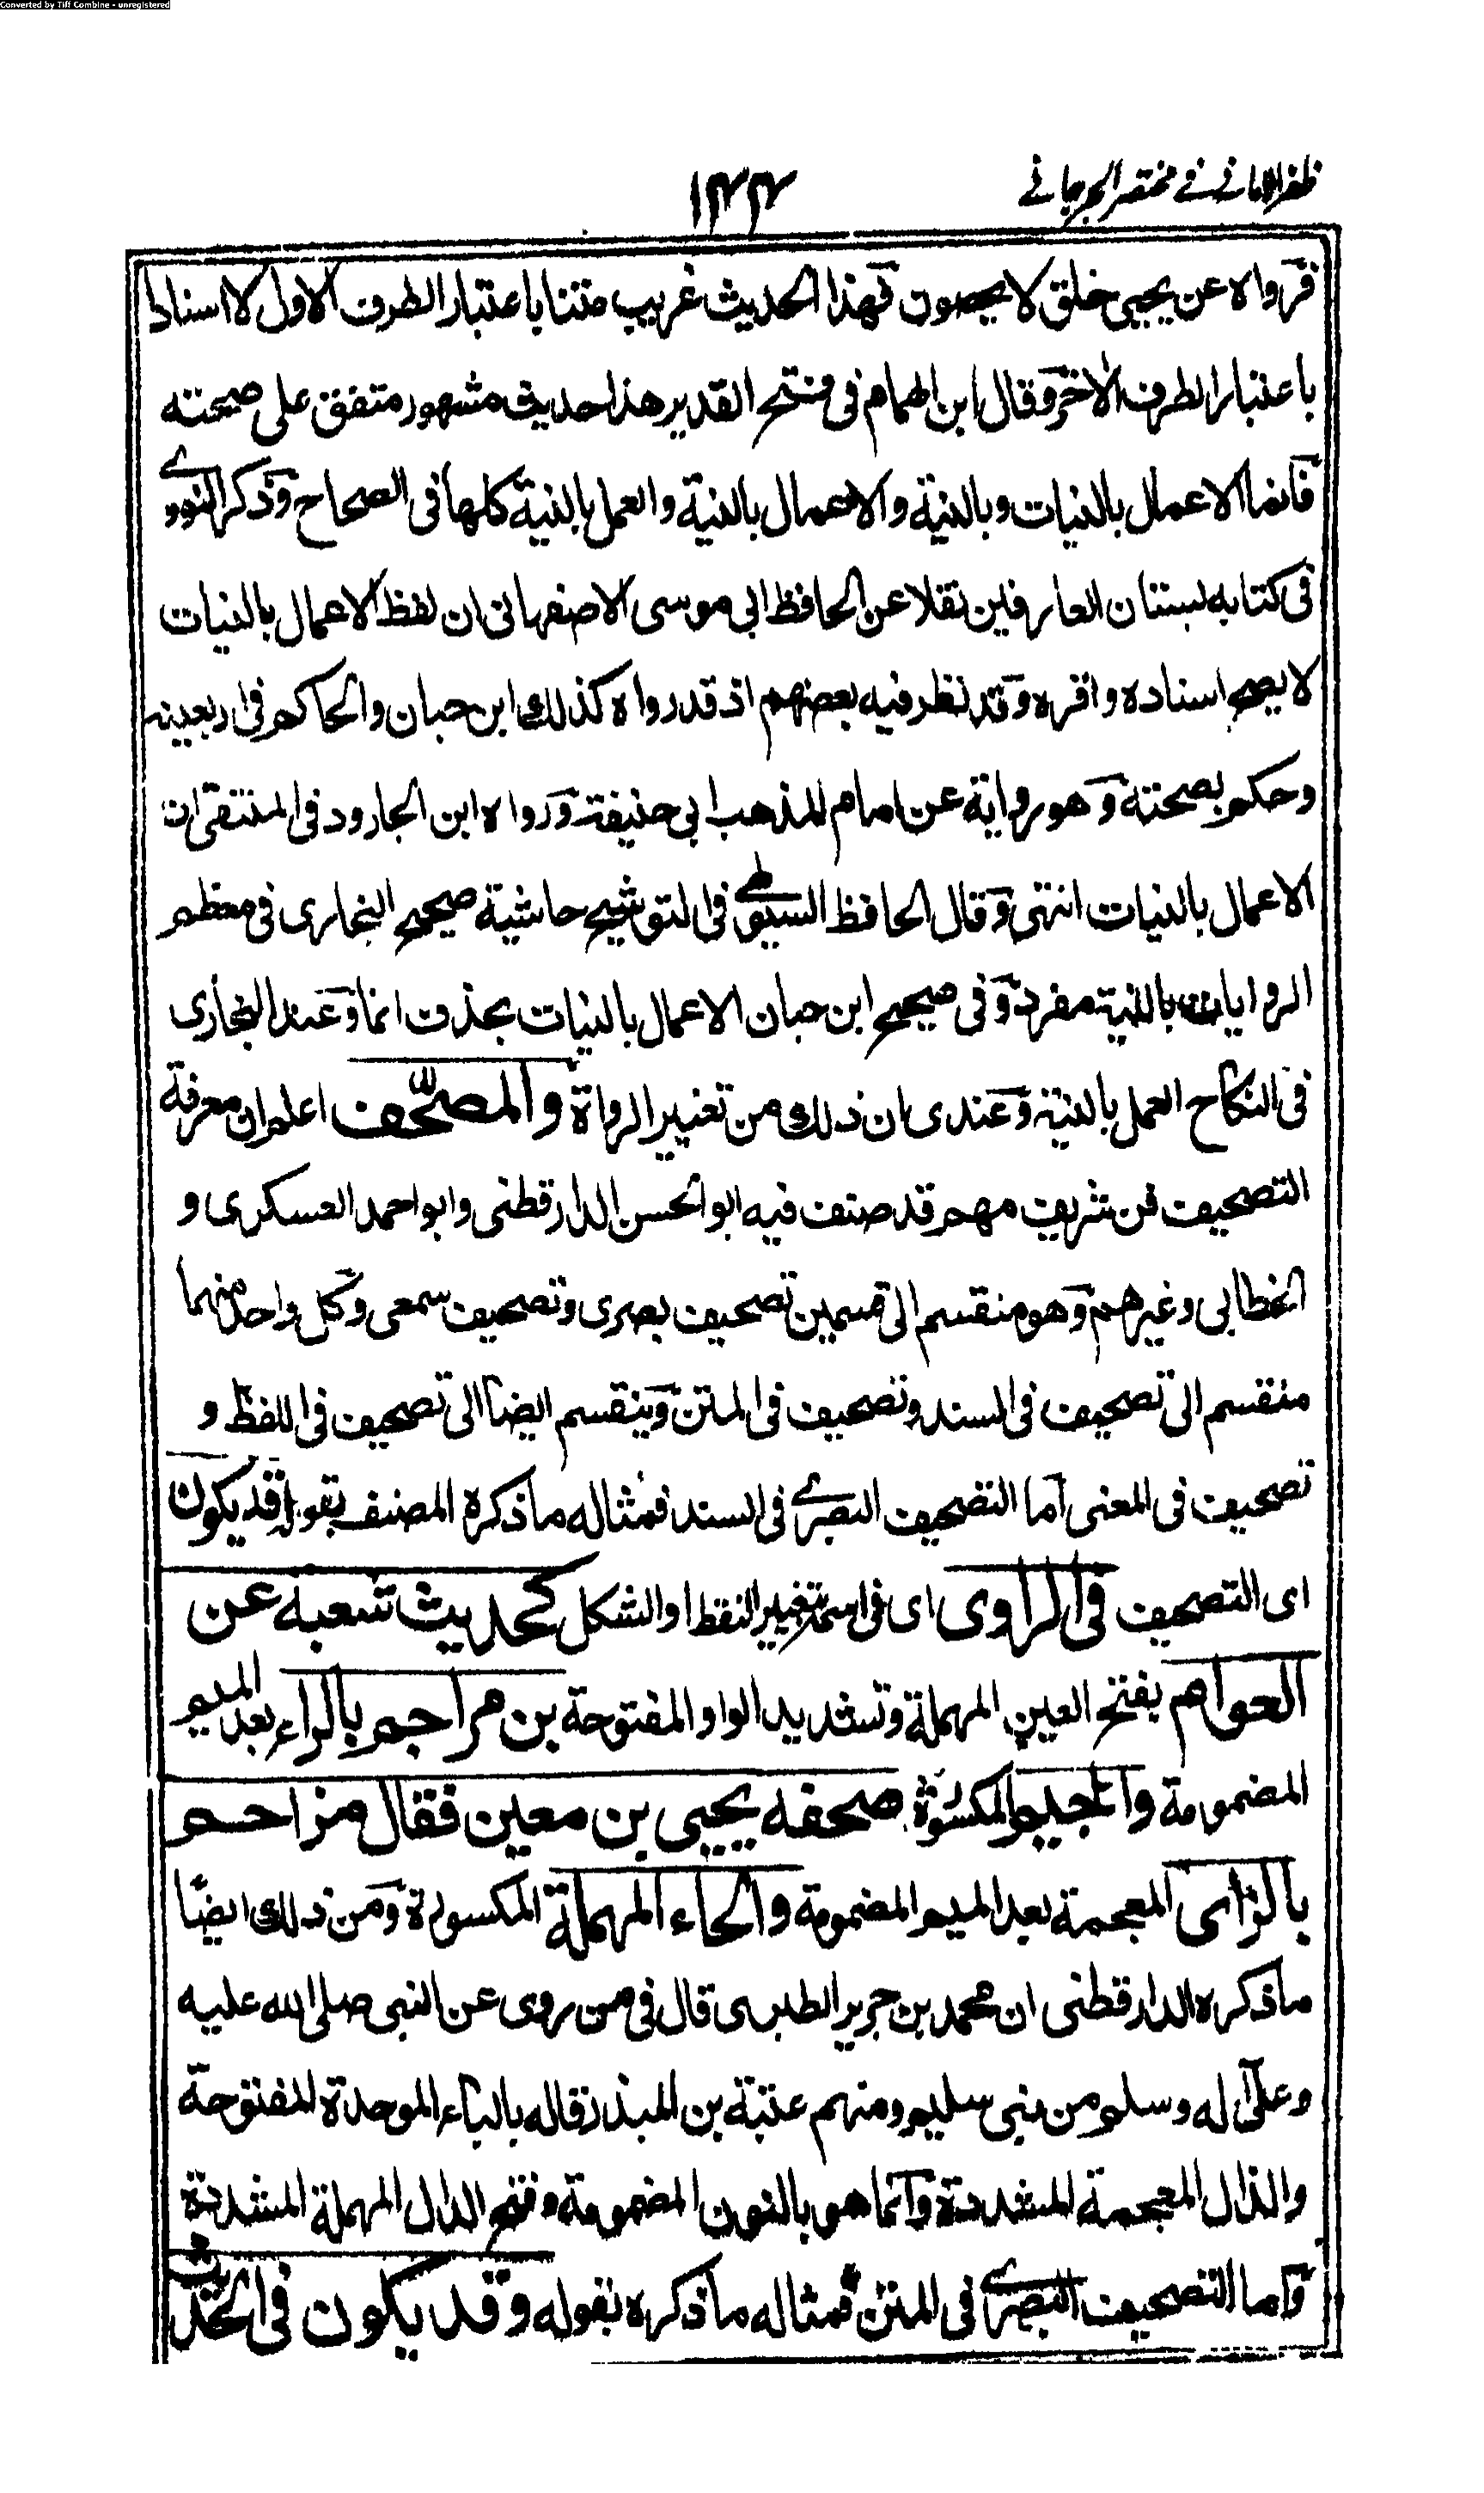 Converted by Tiff Combine - unregistered
ظفر الاماني في مختصر الجرجاني
١٣٣
فرواه عن يحيى خلق لا يحصون فهذا الحديث غريب متنا باعتبار الطرف الاول لا اسنادا
باعتبار الطرف الاخر وقال ابن الهمام فى فتح القدير هذا حديث مشهور متفق على صحته
فانما الاعمال بالنيات وبالنية والاعمال بالنية والعمل بالنية كلها فى الصحاح وذكر النووى
فى كتابه بستان العارفين نقلا عن الحافظ ابى موسى الاصفهانى ان لفظ الاعمال بالنيات
لا يصح اسناده واقره وقد نظر فيه بعضهم اذ قد رواه كذلك ابن حبان والحاكم فى اربعينه
وحكم بصحته وهو رواية عن امام المذهب ابى حنيفة ورواه ابن الجارود فى المنتقى ان
الاعمال بالنيات انتهى وقال الحافظ السيوطى فى التوشيح حاشية صحيح البخارى فى معظم
الروايات بالنية مفردة وفى صحيح ابن حبان الاعمال بالنيات بحذف انما وعند البخارى
فى النكاح العمل بالنية وعندى ان ذلك من تغيير الرواة والمصحَّف اعلم ان معرفة
التصحيف فن شريف مهم قد صنف فيه ابو الحسن الدارقطنى وابو احمد العسكرى و
الخطابى وغيرهم وهو منقسم الى قسمين تصحيف بصرى وتصحيف سمعى وكل واحد منهما
منقسم الى تصحيف فى السند وتصحيف فى المتن وينقسم ايضا الى تصحيف فى اللفظ و
تصحيف فى المعنى اما التصحيف البصرى فى السند فمثاله ما ذكره المصنف بقوله قد يكون
اى التصحيف فى الراوى اى فى اسمه بتغيير النقط او الشكل كحديث شعبة عن
العوام بفتح العين المهملة وتشديد الواو المفتوحة بن مراجم بالراء بعد الميم
المضمومة والجيم المكسورة صحفه يحيى بن معين فقال مزاحم
بالزاى المعجمة بعد الميم المضمومة والحاء المهملة المكسورة ومن ذلك ايضًا
ما ذكره الدارقطنى ان محمد بن جرير الطبرى قال فى من روى عن النبى صلى الله عليه
وعلى اله وسلم من بنى سليم ومنهم عتبة بن البذر قاله بالباء الموحدة المفتوحة
والذال المعجمة المشددة وانما هو بالنون المضمومة وفتح الدال المهملة المشددة
واما التصحيف البصرى فى المتن فمثاله ما ذكره بقوله وقد يكون فى الحديث